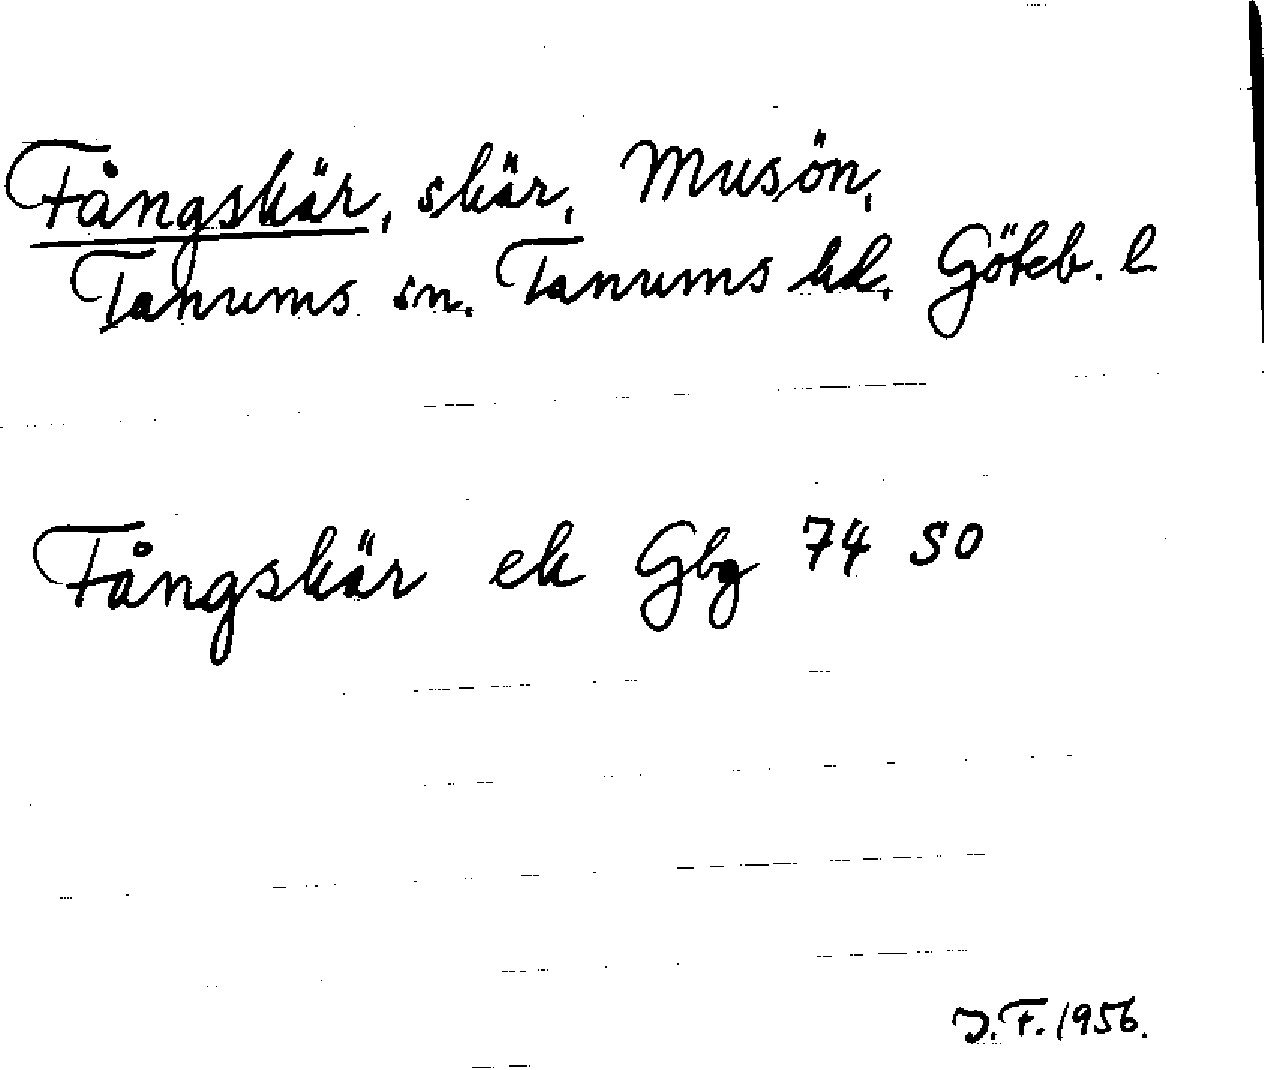 Fångskär, skär, Musön,
Tanums sn. Tanums hd. Göteb. l
Fångskär ek Gbg 74 SO
J.F. 1956.